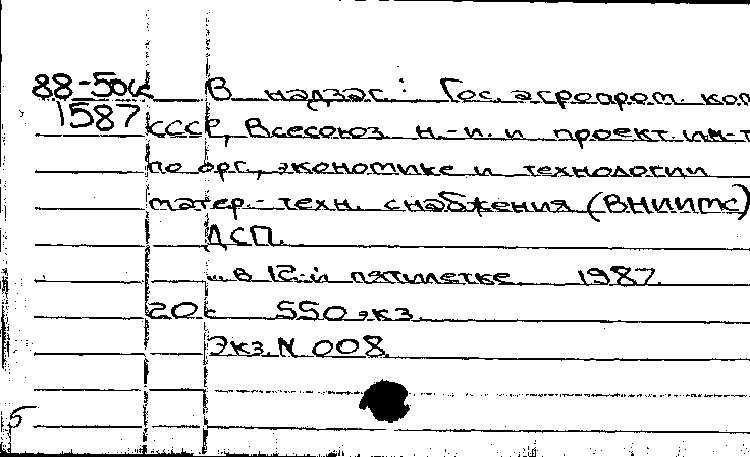 88-50к В надзаг.: Гос. агропром. ком
1587 СССР, Всесоюз. н.-и. и проект. ин-т
по орг., экономике и технологии
матер.-техн. снабжения (ВНИИМС)
ДСП.
... в 12-й пятилетке. 1987.
20 с 550 экз.
Экз. N 008
5